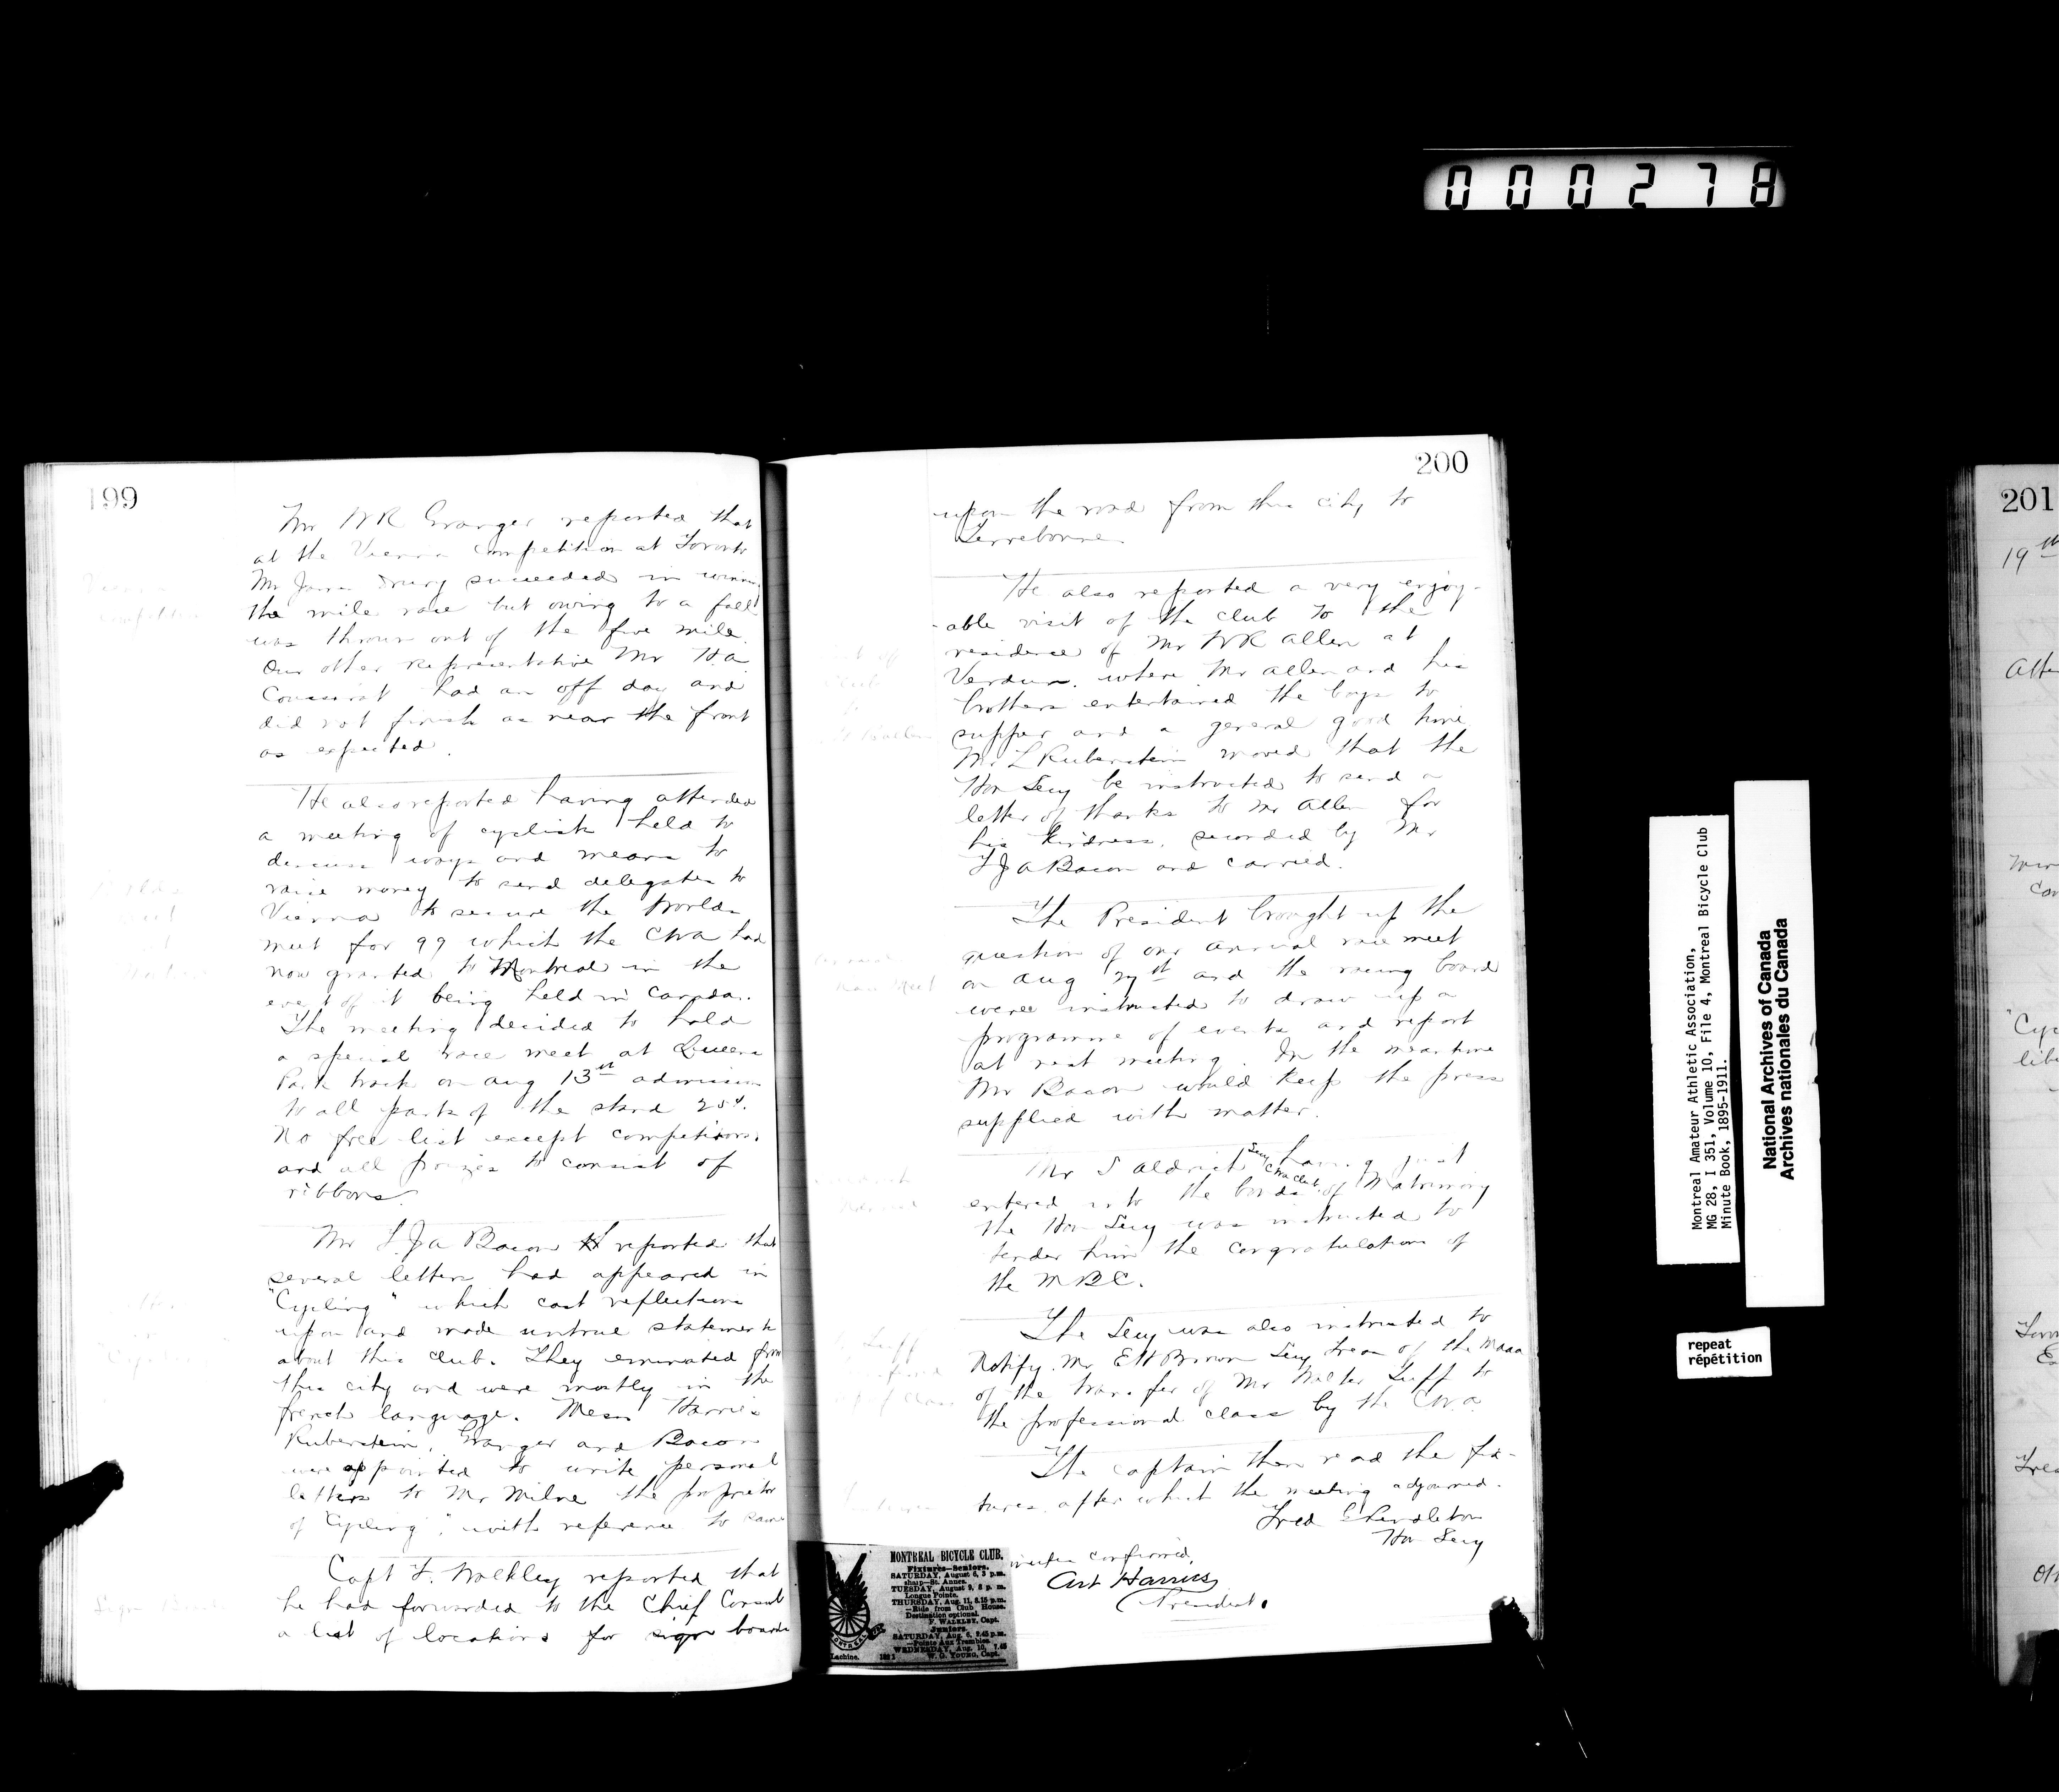 000278
199
Mr WR Granger reported that
at the Vienna Competition at Toronto
Mr James Drury succeeded in winning
the mile race but owing to a fall
was thrown out of the five mile.
Our other Representative Mr H.A.
had an off day and
did not finish as near the front
as expected.
He also reported having attended
a meeting of cyclists held to
discuss ways and means to
raise money to send delegates to
Vienna to secure the Worlds
meet for 99 which the CWA had
now granted to Montreal in the
event of it being held in Canada.
The meeting decided to hold
a special race meet at Queens
Park track on Aug 13th admission
to all parts of the stand 25¢.
No free list except competitors.
and all prizes to consist of
ribbons.
Mr L.J.A Bacon reported that
several letters had appeared in
"Cycling" which cast reflections
upon and made untrue statements
about this club. They eminated from
this city and were mostly in the
french language. Messrs Harries
Rubenstein, Granger and Bacon
were appointed to write personal
letters to Mr Milne the proprietor
of "Cycling", with reference to same
Capt F. Walkley reported that
he had forwarded to the Chief Consul
a list of locations for sign boards
200
upon the road from this city to
Terrebonne.
He also reported a very enjoy-
-able visit of the club to the
residence of Mr WR Allen at
Verdun. where Mr Allen and his
brothers entertained the boys to
supper and a general good time
Mr L Rubenstein moved that the
Hon Secy be instructed to send a
letter of thanks to Mr Allen for
his kindness. seconded by Mr
LJA Bacon and carried.
The President brought up the
question of our annual race meet
on Aug 27th and the racing board
were instructed to draw up a
programme of events and report
at next meeting. In the meantime
Mr Bacon would keep the press
supplied with matter.
Mr S Aldrich Secy having just
entered into the bonds of Matrimony
the Hon Secy was instructed to
tender him the congratulations of
the M B C.
The Secy was also instructed to
Notify Mr E H Brown Secy Treas of the MAAA
of the transfer of Mr Walter Luff to
the professional class by the C.W.A.
The captain then read the fix-
tures. after which the meeting adjourned.
Fred C Pendleton
Hon Secy
confirmed,
Art Harries
President.
MONTREAL BICYCLE CLUB.
Fixtures—Seniors.
SATURDAY, August 6, 3 p.m.
sharp—St. Annes.
TUESDAY, August 9, 8 p. m.
Longue Pointe.
THURSDAY, Aug. 11, 8.15 p.m.
—Ride from Club House.
Destination optional.
F. WALKLEY, Capt.
Juniors.
SATURDAY, Aug. 6, 2.45 p.m.
—Pointe Aux Trembles.
WEDNESDAY, Aug. 10, 7.45
Lachine.
W. G. YOUNG, Capt.
Montreal Amateur Athletic Association,
MG 28, I 351, Volume 10, File 4, Montreal Bicycle Club
Minute Book, 1895-1911.
National Archives of Canada
Archives nationales du Canada
repeat
répétition
201
19th